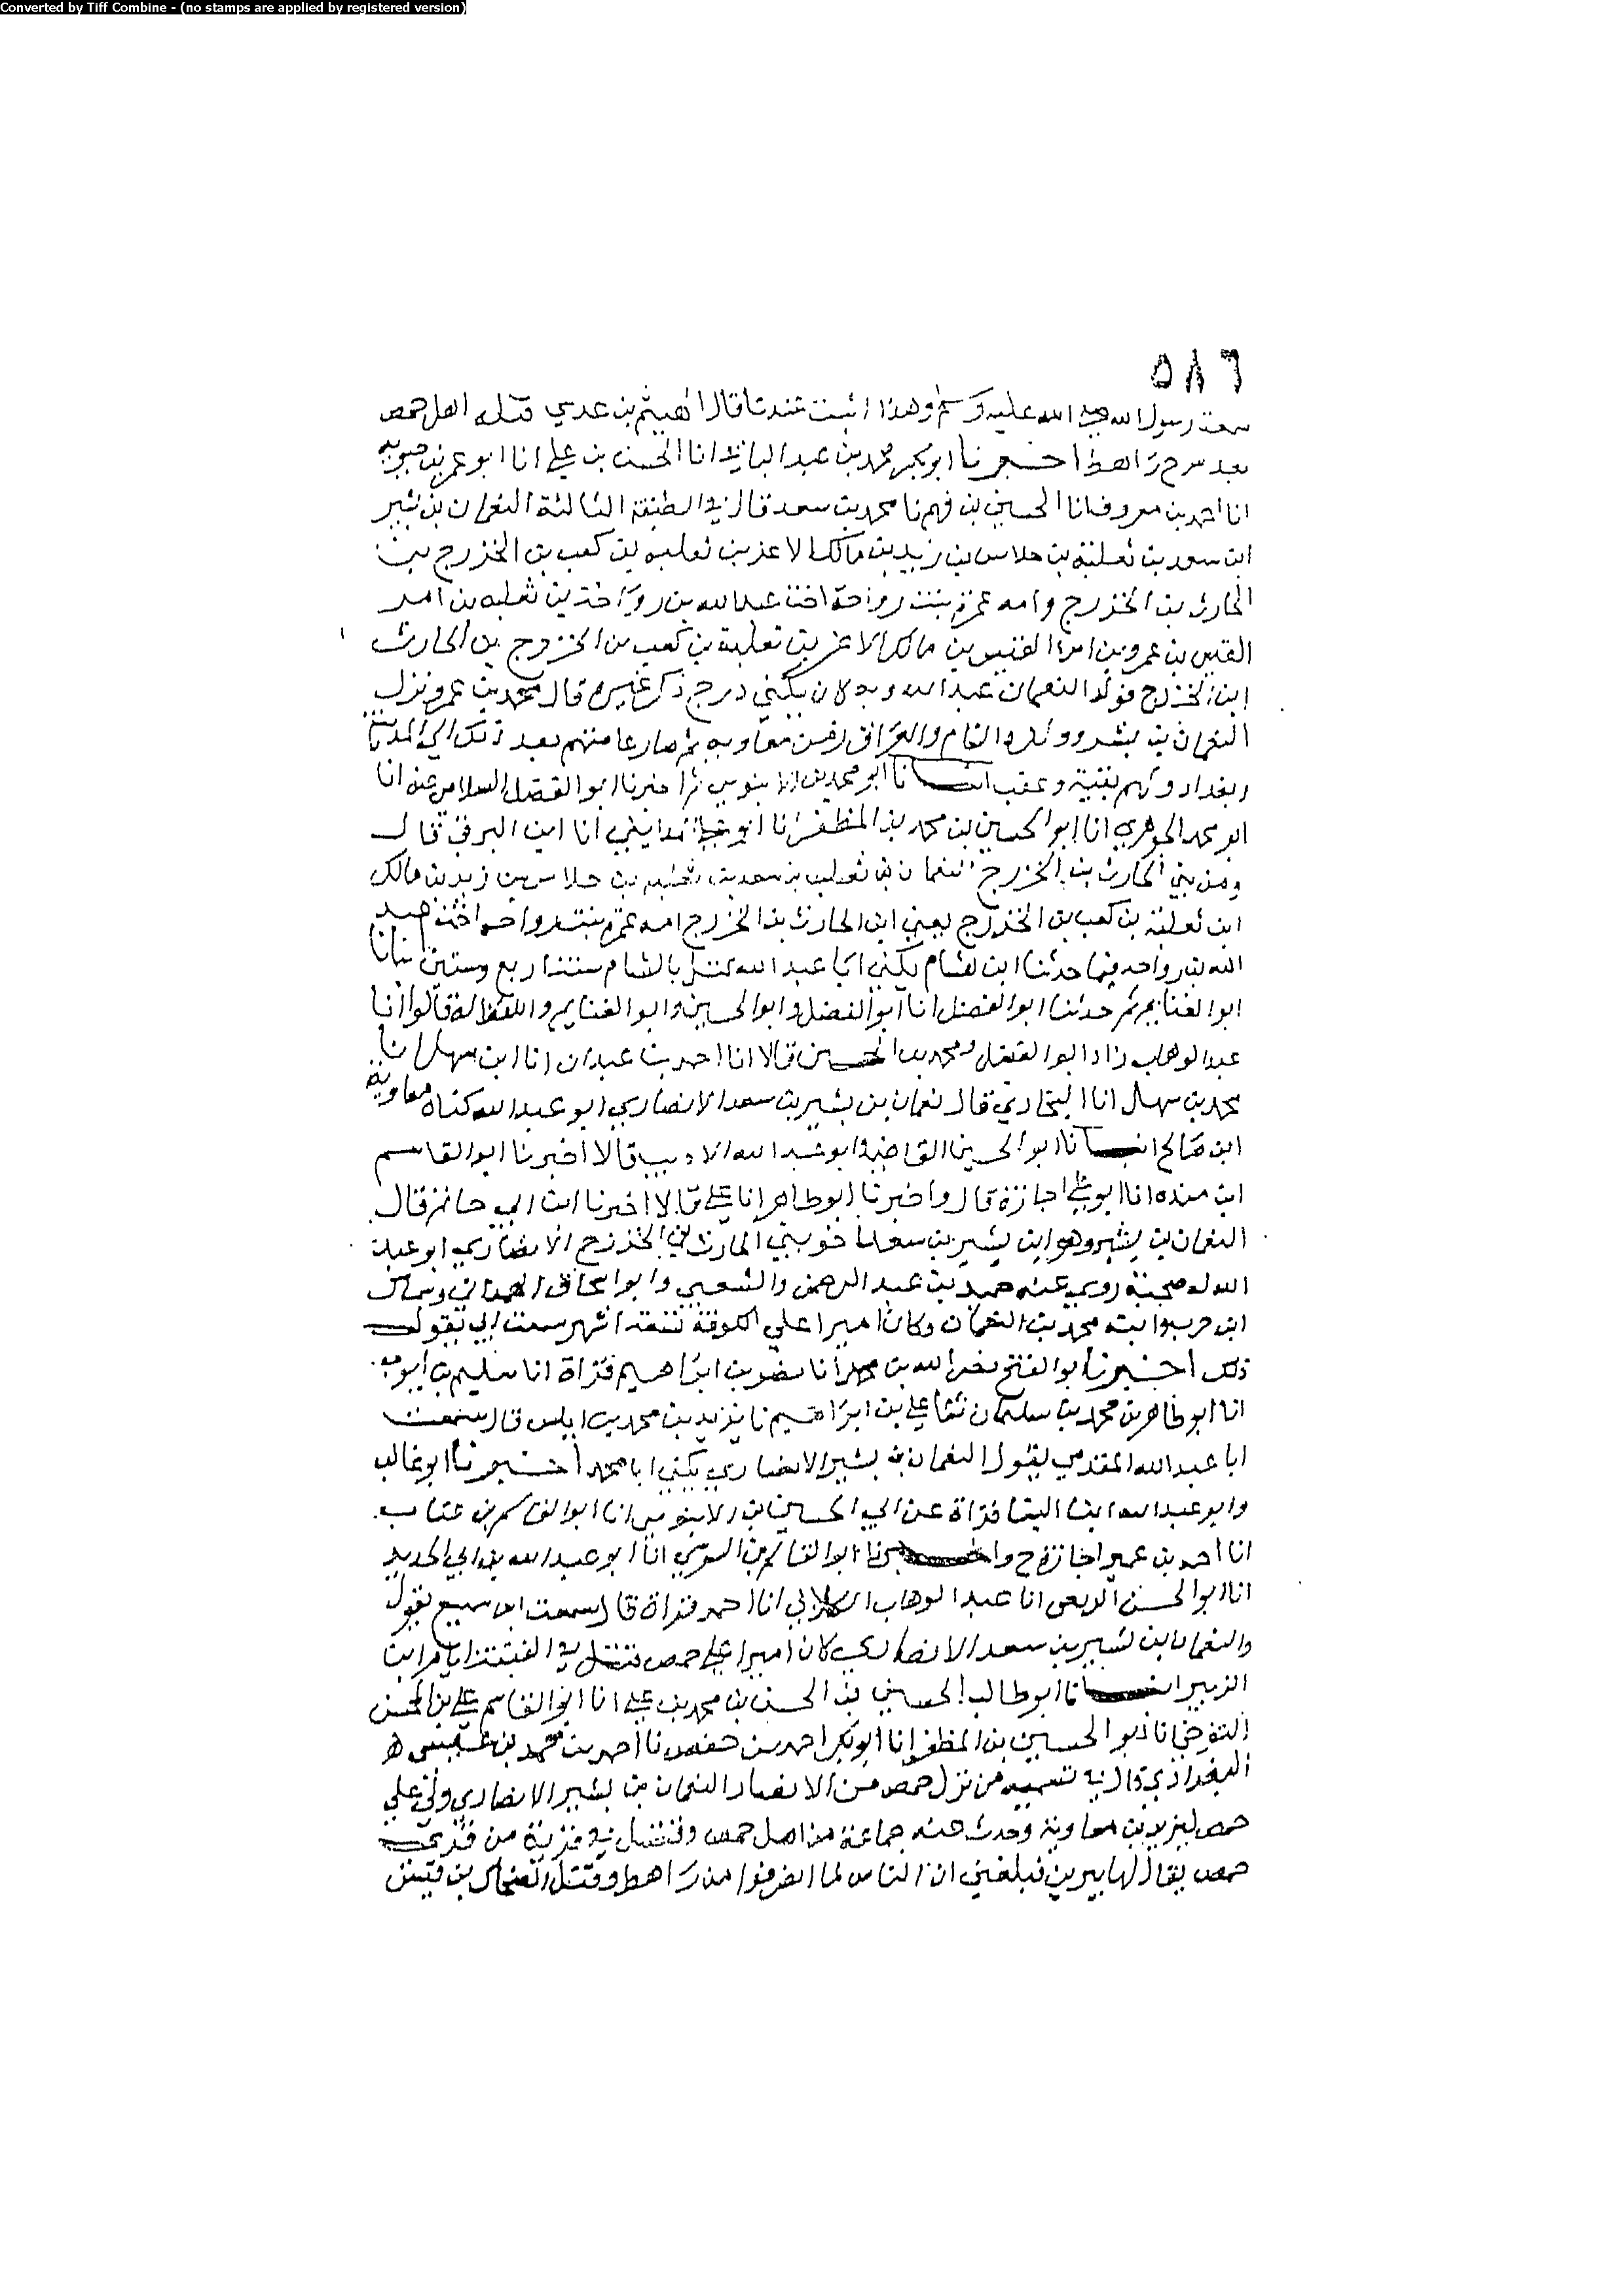 Converted by Tiff Combine - (no stamps are applied by registered version)
٥٨٦
سمعت رسول الله صلى الله عليه وسلم وهذا اثبت عندنا قال الهيثم بن عدي قتله اهل حمص
بعد مرج راهط اخبرنا ابو بكر محمد بن عبد الباقي انا الحسن بن علي انا ابو عمر بن حيويه
انا احمد بن معروف انا الحسين بن فهم نا محمد بن سعد قال في الطبقة الثالثة النعمان بن بشير
ابن سعد بن ثعلبة بن خلاس بن زيد بن مالك الاغر بن ثعلبه بن كعب بن الخزرج بن
الحارث بن الخزرج وامه عمرة بنت رواحة اخت عبد الله بن رواحة بن ثعلبه بن امر
القيس بن عمرو بن امرا القيس بن مالك الاغر بن ثعلبة بن كعب بن الخزرج بن الحارث
ابن الخزرج فولد النعمان عبد الله وبه كان يكنى درج ذكر غيره قال محمد بن عمر ونزل
النعمان بن بشير وولده الشام والعراق زمن معاويه ثم صار عامتهم بعد ذلك الى المدينة
وبغداد ولهم بقية وعقب انبانا ابو محمد بن الابنوسي ثم اخبرنا ابو الفضل السلامي عنه انا
ابو محمد الجوهري انا ابو الحسين بن محمد بن المظفر انا ابو علي المدايني انا ابن البرقي قال
ومن بني الحارث بن الخزرج النعمان بن ثعلبه بن سعد بن ثعلبه بن خلاس بن زيد بن مالك
ابن ثعلبة بن كعب بن الخزرج يعني ابن الحارث بن الخزرج امه عمرة بنت رواحه اخت عبد
الله بن رواحه فيما حدثنا ابن هشام يكنى ابا عبد الله قتل بالشام سنة اربع وستين انبانا
ابو الغنايم ثم حدثنا ابو الفضل انا ابو الفضل وابو الحسين وابو الغنايم واللفظ له قالوا انا
عبد الوهاب زاد ابو الفضل ومحمد بن الحسين قالا انا احمد بن عبدان انا ابن سهل انا
محمد بن سهل انا البخاري قال نعمان بن بشير بن سعد الانصاري ابو عبد الله كناه معاوية
ابن صالح انبانا ابو الحسين القاضي وابو عبد الله الاديب قالا اخبرنا ابو القاسم
ابن منده انا ابو علي اجازة قال واخبرنا ابو طاهر انا علي قالا اخبرنا ابن ابي حاتم قال
النعمان بن بشير وهو ابن بشير بن سعد اخو بني الحارث بن الخزرج الانصاري ابو عبد
الله له صحبة روى عنه حميد بن عبد الرحمن والشعبي وابو اسحاق الهمداني وسماك
ابن حرب وابنه محمد بن النعمان وكان اميرا على الكوفة تسعة اشهر سمعت ابي يقول
ذلك اخبرنا ابو الفتح نصر الله بن محمد انا نصر بن ابراهيم قراة انا سليم بن ايوب
انا ابو طاهر بن محمد بن سليمان نا علي بن ابراهيم نا يزيد بن محمد بن اياس قال سمعت
ابا عبد الله المقدمي يقول النعمان بن بشير الانصاري يكنى ابا محمد اخبرنا ابو غالب
وابو عبد الله ابنا البنا قراة عن ابي الحسين بن الابنوسي انا ابو القاسم بن عتاب
انا احمد بن عمير اجازة ح واخبرنا ابو القاسم بن السوسي انا ابو عبد الله بن ابي الحديد
انا ابو الحسن الربعي انا عبد الوهاب الكلابي انا احمد قراة قال سمعت ابن سميع يقول
والنعمان بن بشير بن سعد الانصاري كان اميرا على حمص قتل في الفتنة ايام ابن
الزبير انبانا ابو طالب الحسين بن الحسن بن محمد بن علي انا ابو القاسم علي بن المحسن
التنوخي انا ابو الحسين بن المظفر انا ابو بكر احمد بن حفص نا احمد بن محمد بن عيسى
البغدادي قال في تسميه من نزل حمص من الانصار النعمان بن بشير الانصاري ولي على
حمص ليزيد بن معاوية وحدث عنه جماعة من اهل حمص وقتل في قرية من قرى
حمص يقال لها بيرين فبلغني ان الناس لما انصرفوا من راهط وقتل الضحاك بن قيس